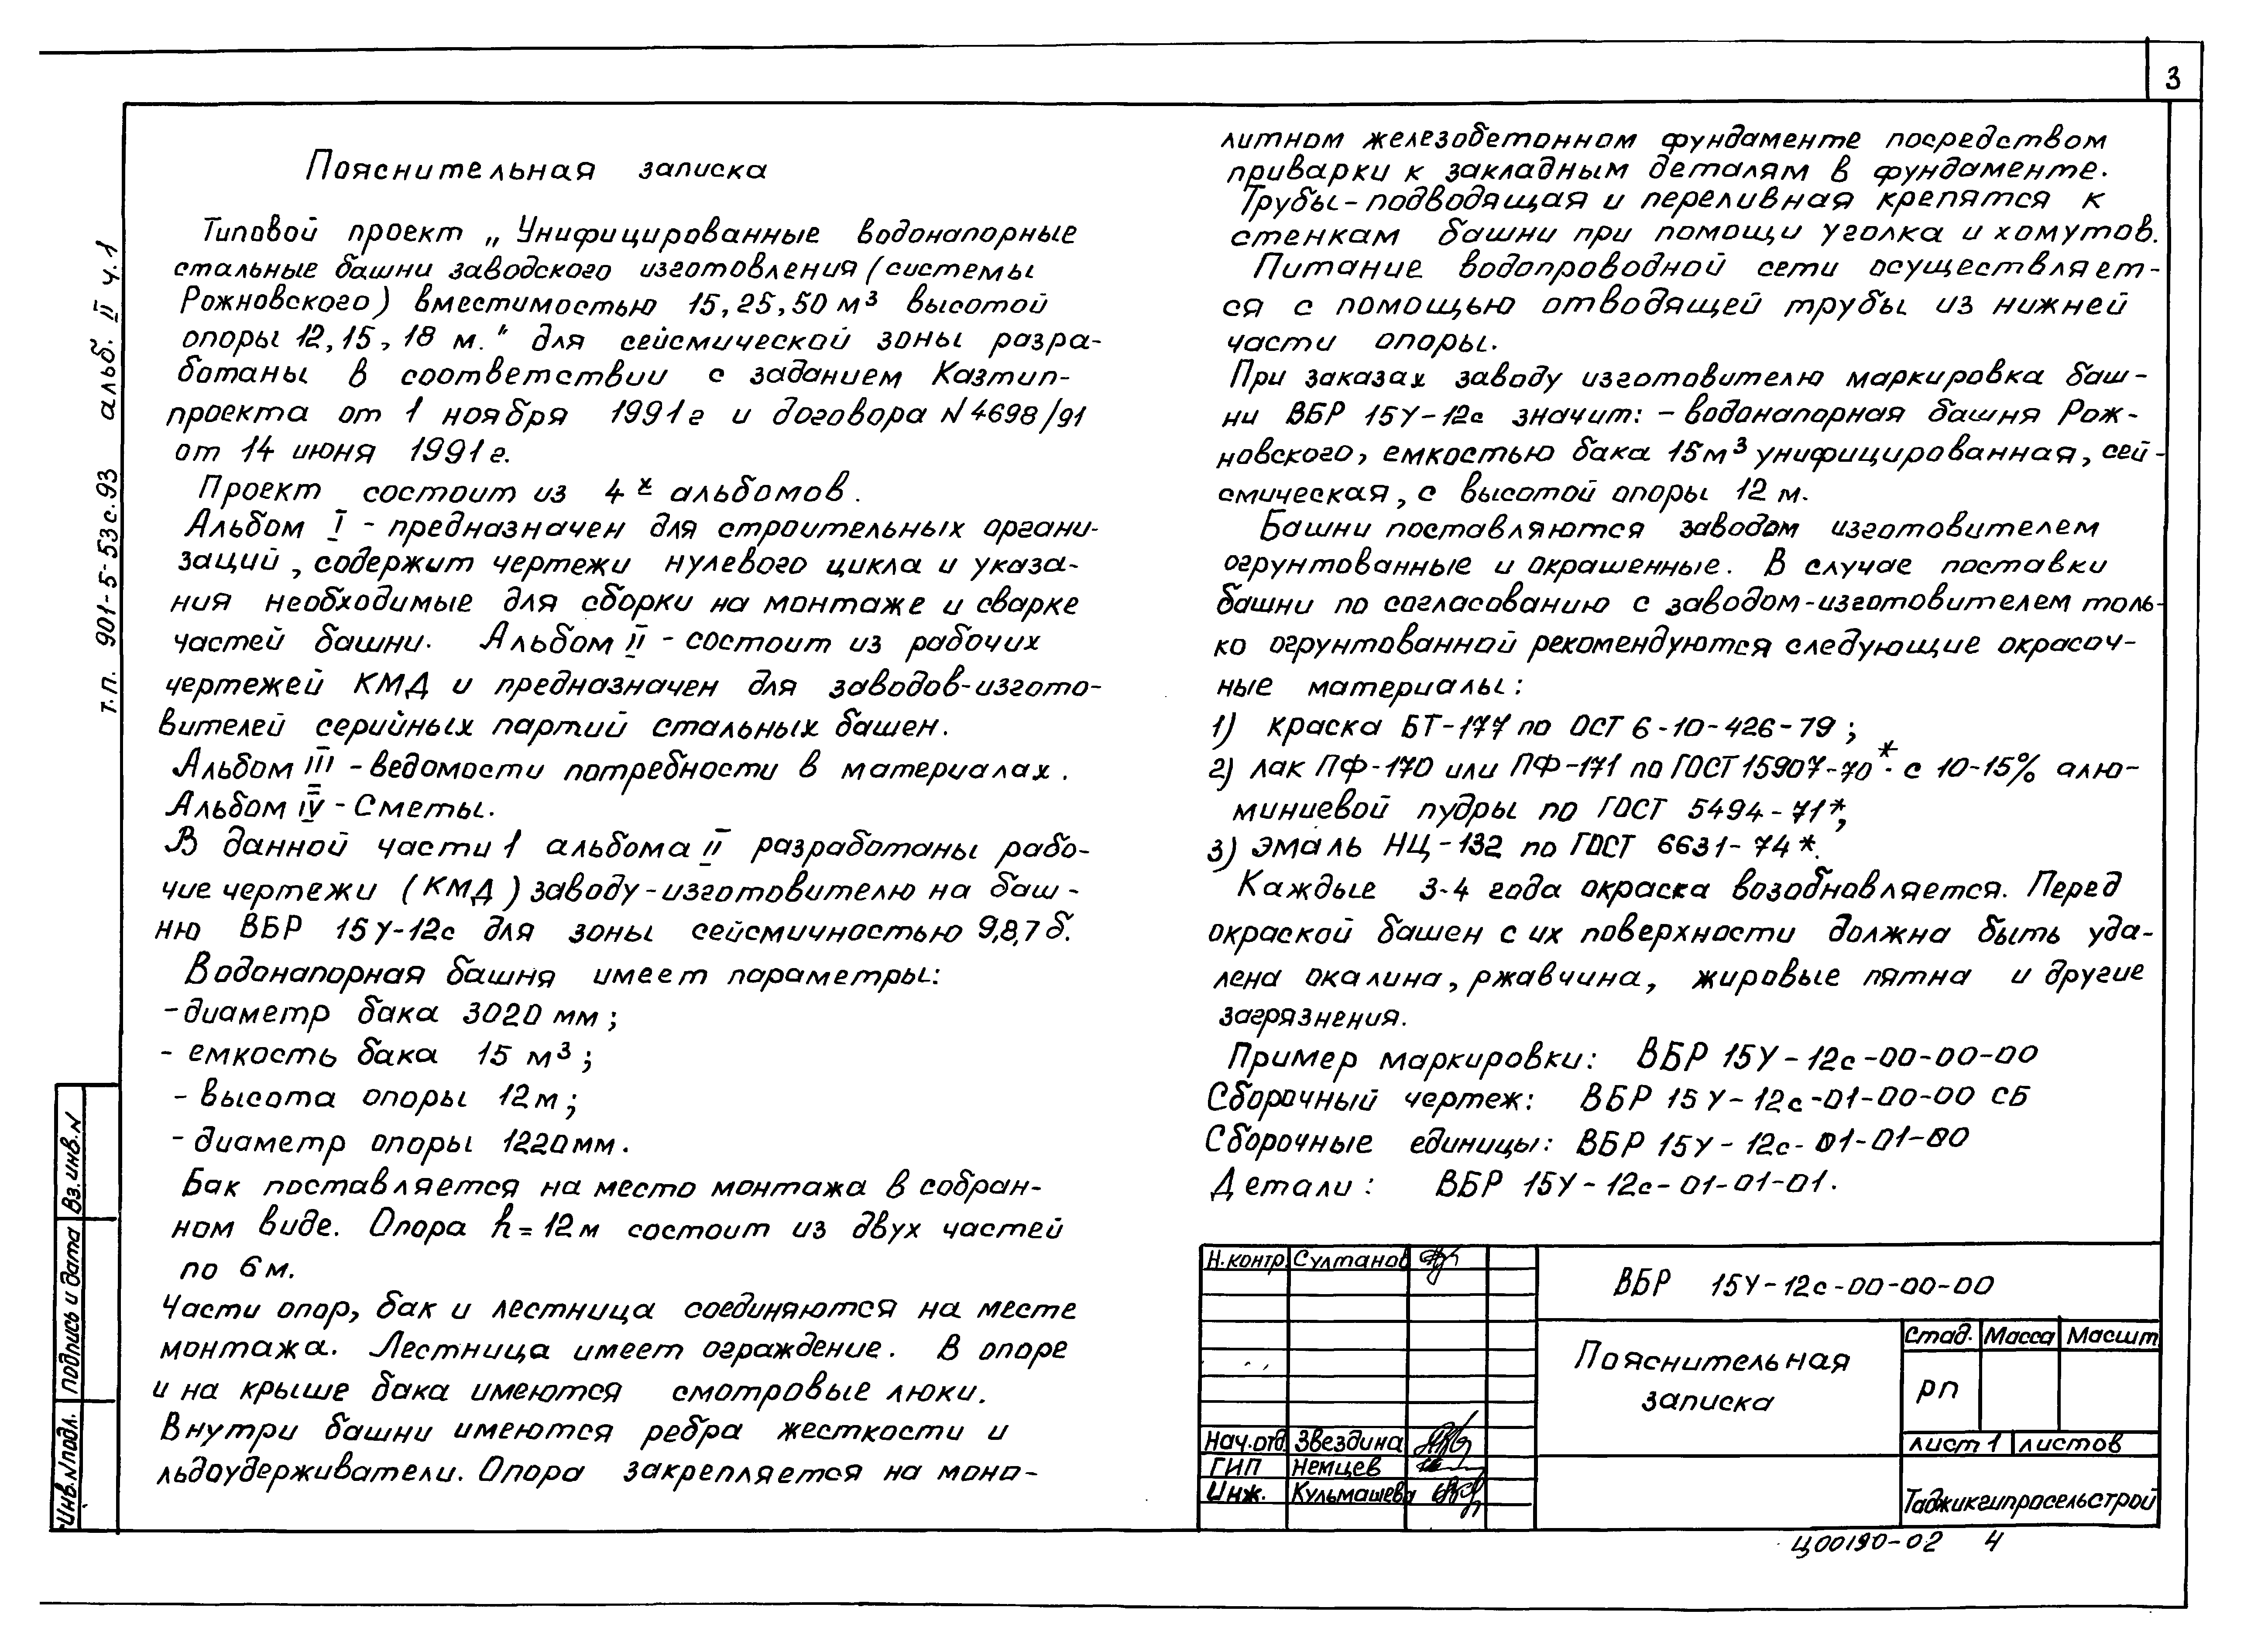 3
т.п. 901-5-53с.93 альб. II ч.1
Пояснительная записка
Типовой проект „Унифицированные водонапорные
стальные башни заводского изготовления (системы
Рожновского) вместимостью 15, 25, 50 м³ высотой
опоры 12, 15, 18 м." для сейсмической зоны разра-
ботаны в соответствии с заданием Казтип-
проекта от 1 ноября 1991г и договора N 4698/91
от 14 июня 1991г.
Проект состоит из 4х альбомов.
Альбом I - предназначен для строительных органи-
заций, содержит чертежи нулевого цикла и указа-
ния необходимые для сборки на монтаже и сварке
частей башни. Альбом II - состоит из рабочих
чертежей КМД и предназначен для заводов-изгото-
вителей серийных партий стальных башен.
Альбом III - ведомости потребности в материалах.
Альбом IV - Сметы.
В данной части 1 альбома II разработаны рабо-
чие чертежи (КМД) заводу-изготовителю на баш-
ню ВБР 15У-12с для зоны сейсмичностью 9,8,7 б.
Водонапорная башня имеет параметры:
- диаметр бака 3020 мм;
- емкость бака 15 м³;
- высота опоры 12 м;
- диаметр опоры 1220 мм.
Бак поставляется на место монтажа в собран-
ном виде. Опора h = 12 м состоит из двух частей
по 6 м.
Части опор, бак и лестница соединяются на месте
монтажа. Лестница имеет ограждение. В опоре
и на крыше бака имеются смотровые люки.
Внутри башни имеются ребра жесткости и
льдоудерживатели. Опора закрепляется на моно-
литном железобетонном фундаменте посредством
приварки к закладным деталям в фундаменте.
Трубы - подводящая и переливная крепятся к
стенкам башни при помощи уголка и хомутов.
Питание водопроводной сети осуществляет-
ся с помощью отводящей трубы из нижней
части опоры.
При заказах заводу изготовителю маркировка баш-
ни ВБР 15У-12с значит: - водонапорная башня Рож-
новского, емкостью бака 15м³ унифицированная, сей-
смическая, с высотой опоры 12 м.
Башни поставляются заводом изготовителем
огрунтованные и окрашенные. В случае поставки
башни по согласованию с заводом-изготовителем толь-
ко огрунтованной рекомендуются следующие окрасоч-
ные материалы:
1) краска БТ-177 по ОСТ 6-10-426-79;
2) лак ПФ-170 или ПФ-171 по ГОСТ 15907-70*. с 10-15% алю-
миниевой пудры по ГОСТ 5494-71*;
3) эмаль НЦ-132 по ГОСТ 6631-74*.
Каждые 3-4 года окраска возобновляется. Перед
окраской башен с их поверхности должна быть уда-
лена окалина, ржавчина, жировые пятна и другие
загрязнения.
Пример маркировки: ВБР 15У-12с-00-00-00
Сборочный чертеж: ВБР 15У-12с-01-00-00 СБ
Сборочные единицы: ВБР 15У-12с-01-01-00
Детали: ВБР 15У-12с-01-01-01.
Вз. инв. N
Подпись и дата
Инв. N подл.
Н. контр. Султанов
Нач. отд. Звездина
ГИП Немцев
Инж. Кульмашева
ВБР 15У-12с-00-00-00
Пояснительная
записка
Стад. Масса Масшт
РП
лист 1 листов
Таджикгипросельстрой
Ц00190-02 4